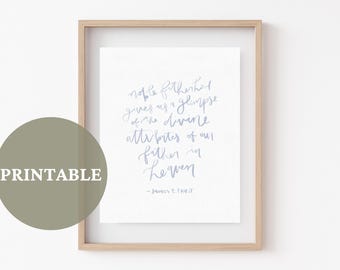 noble fatherhood
gives us a glimpse
of the divine
attributes of our
father in
heaven
- James E. Faust
PRINTABLE